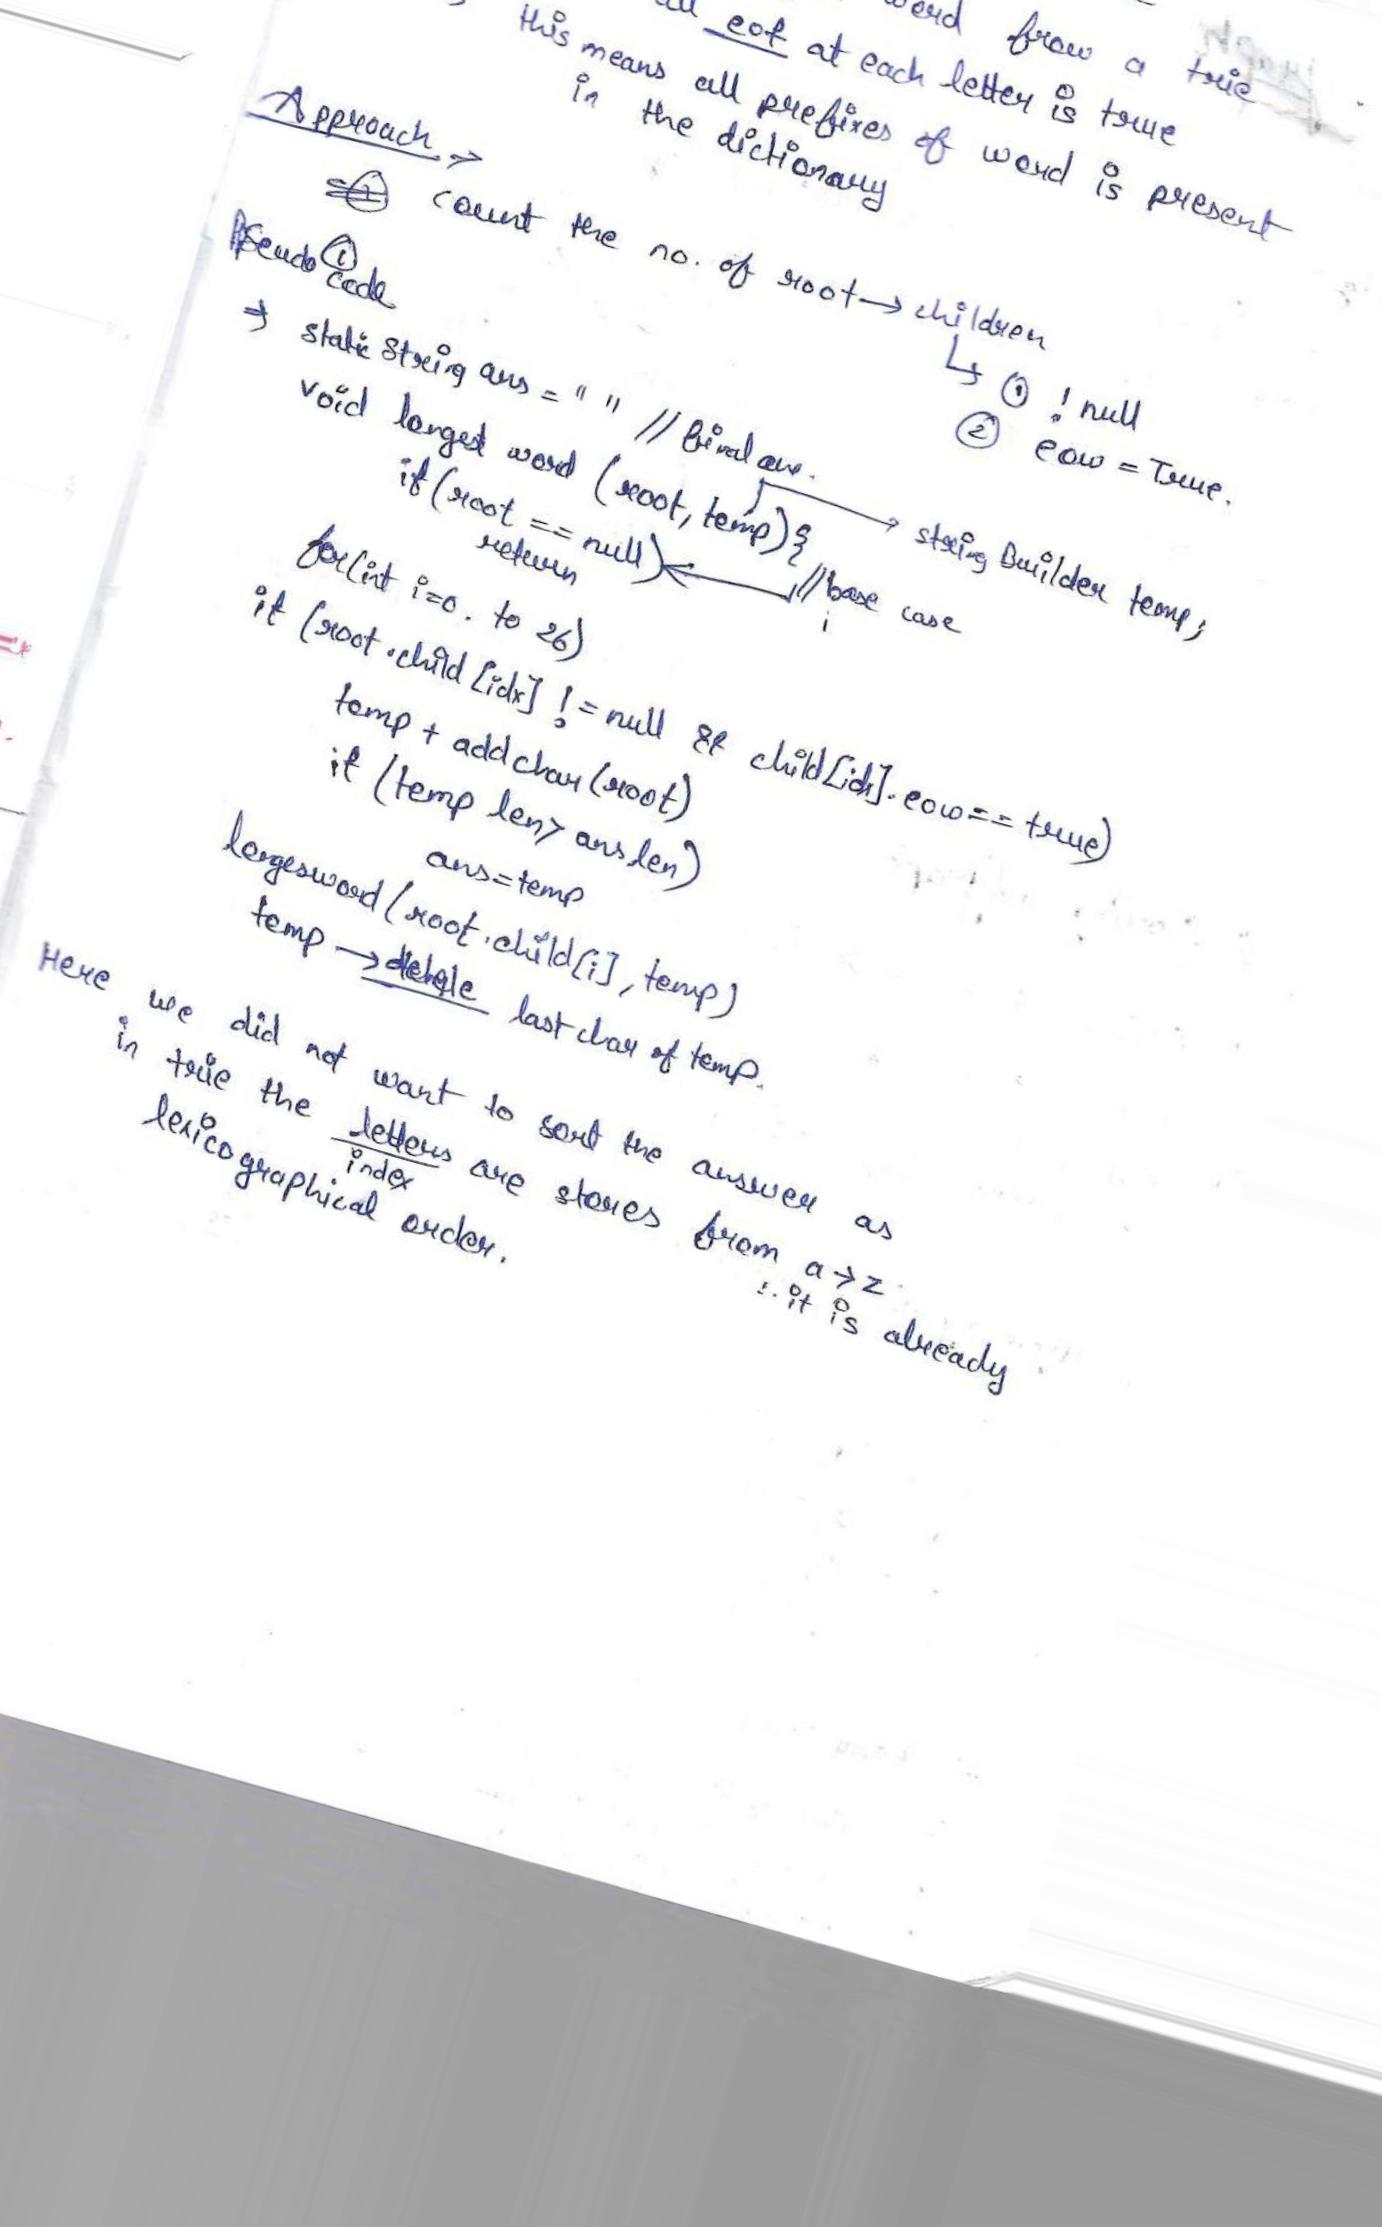 word from a trie
eof at each letter is true
this means all prefixes of word is present
in the dictionary
Approach →
count the no. of root → children
① ! null
② eow = True.
Pseudo ① Code
⇒ static String ans = " " // final ans.
void largest word (root, temp) {
string Builder temp;
if (root == null) //base case
return
for (int i=0. to 26)
if (root.child [idx] != null && child[idx].eow == true)
temp + add char (root)
if (temp len > ans len)
ans = temp
largesword (root.child[i], temp)
temp → delete last char of temp.
Here we did not want to sort the answer as
in trie the letters are stores from a → z
index
∴ it is already
lexicographical order.